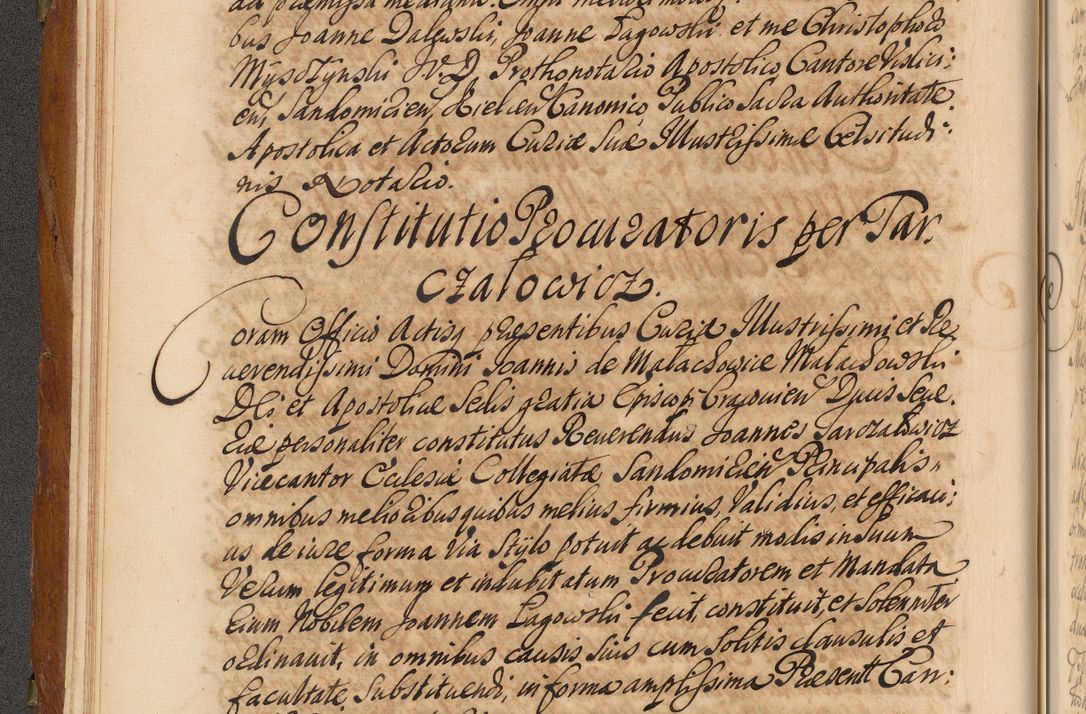 bus Joanne Dalewski, Joanne Łagowski et me Christophoro
Mysdzynski J.V.D. Prothonotario Apostolico Cantore Vislici:
en, Sandomirien, Kielcen Canonico, Publico Sacra Authoritate
Apostolica et Actorum Curiæ Suæ Illustrissimæ Celsitudi:
nis Notario.
Constitutio Procuratoris per Tar,
czałowicz.
Coram Officio Actisq præsentibus Curiæ Illustrissimi et Re
verendissimi Domini Joannis de Małachowice Małachowski
DEi et Apostolicæ Sedis gratia Episcopi Cracovien Ducis Seve,
riæ personaliter constitutus Reverendus Joannes Tarczałowicz
Vicecantor Ecclesiæ Collegiatæ Sandomirien Principalis,
omnibus melioribus quibus melius, firmius, Validius, et efficaci:
us de iure forma Via Stylo potuit ac debuit modis in suum
Verum legitimum et indubitatum Procuratorem et Mandata
rium Nobilem Joannem Łagowski fecit, constituit, et Solenniter
ordinavit, in omnibus causis suis cum Solitis clausulis et
facultate, Substituendi, in forma amplissima Præsent Can: